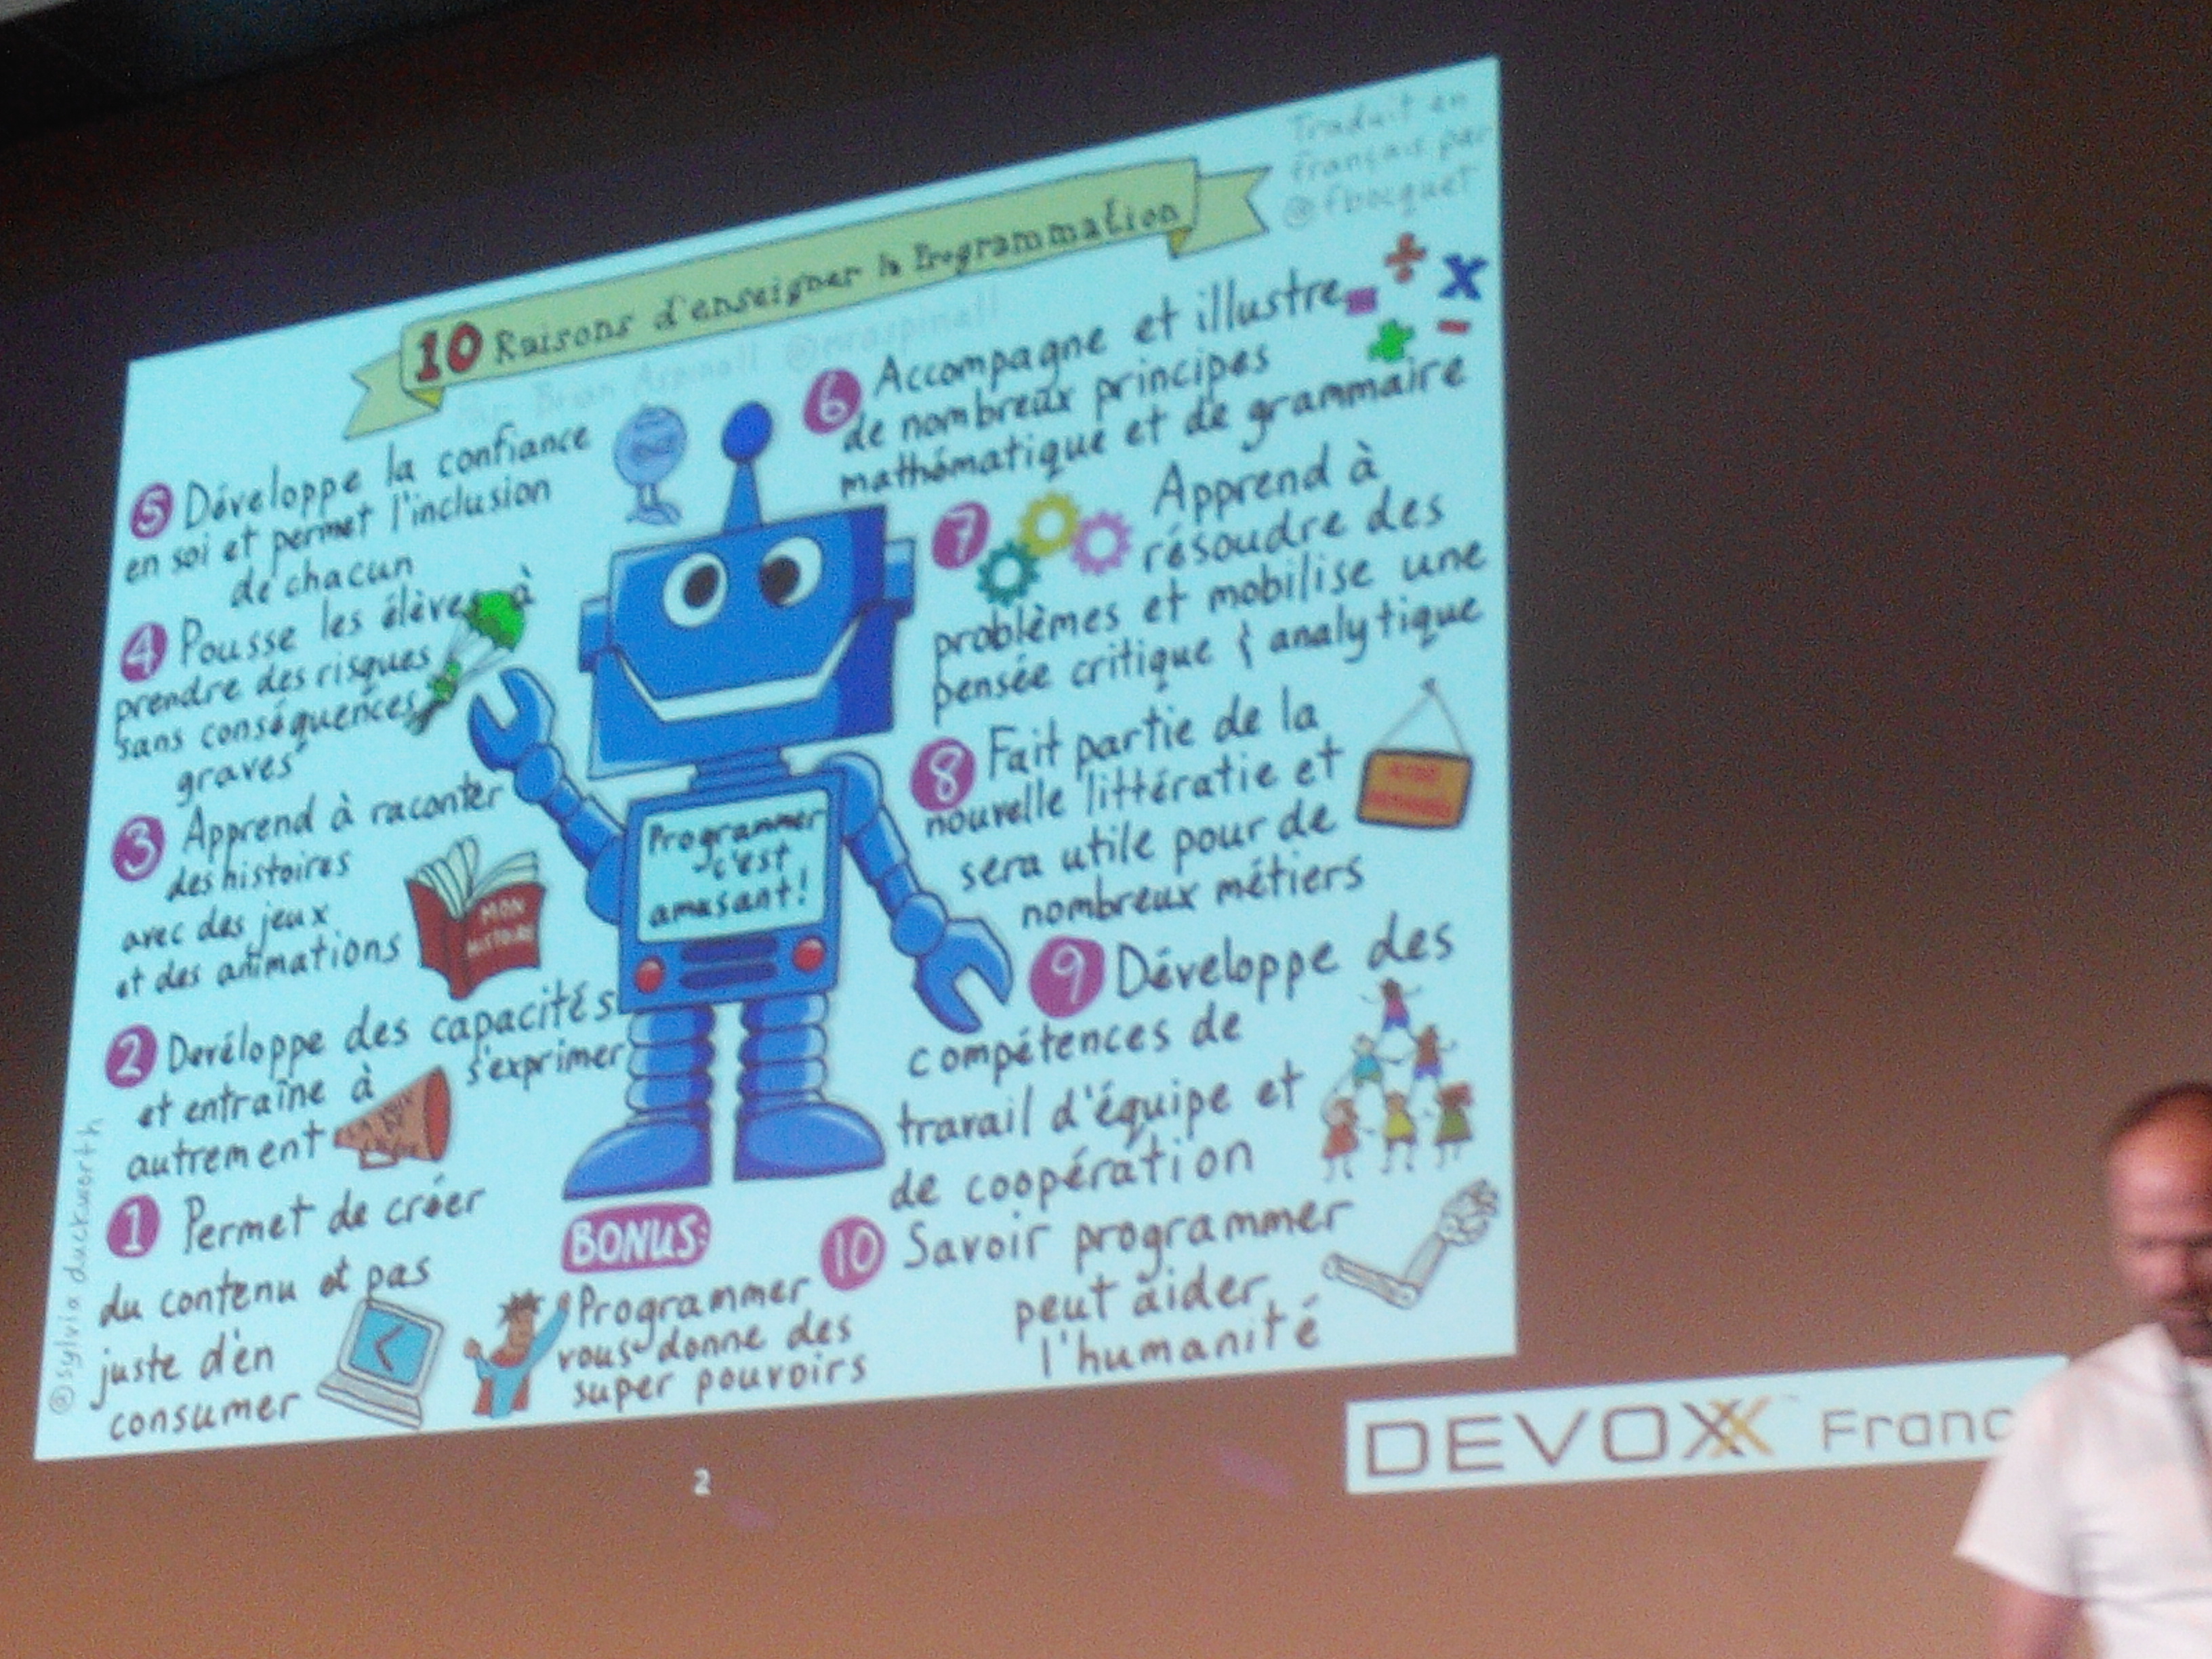 Traduit en
français par
@fbocquet
10 Raisons d'enseigner la Programmation
Par Brian Aspinall @mraspinall
5 Développe la confiance
en soi et permet l'inclusion
de chacun
4 Pousse les élèves à
prendre des risques
sans conséquences
graves
3 Apprend à raconter
des histoires
avec des jeux
et des animations
MON
HISTOIRE
2 Devéloppe des capacités
et entraîne à s'exprimer
autrement
1 Permet de créer
du contenu et pas
juste d'en
consumer
@sylvia duckworth
Programmer
c'est
amusant!
BONUS:
Programmer
vous donne des
super pouvoirs
6 Accompagne et illustre
de nombreux principes
mathématique et de grammaire
7 Apprend à
résoudre des
problèmes et mobilise une
pensée critique & analytique
8 Fait partie de la
nouvelle littératie et
sera utile pour de
nombreux métiers
9 Développe des
compétences de
travail d'équipe et
de coopération
10 Savoir programmer
peut aider
l'humanité
2
DEVOXX Franc